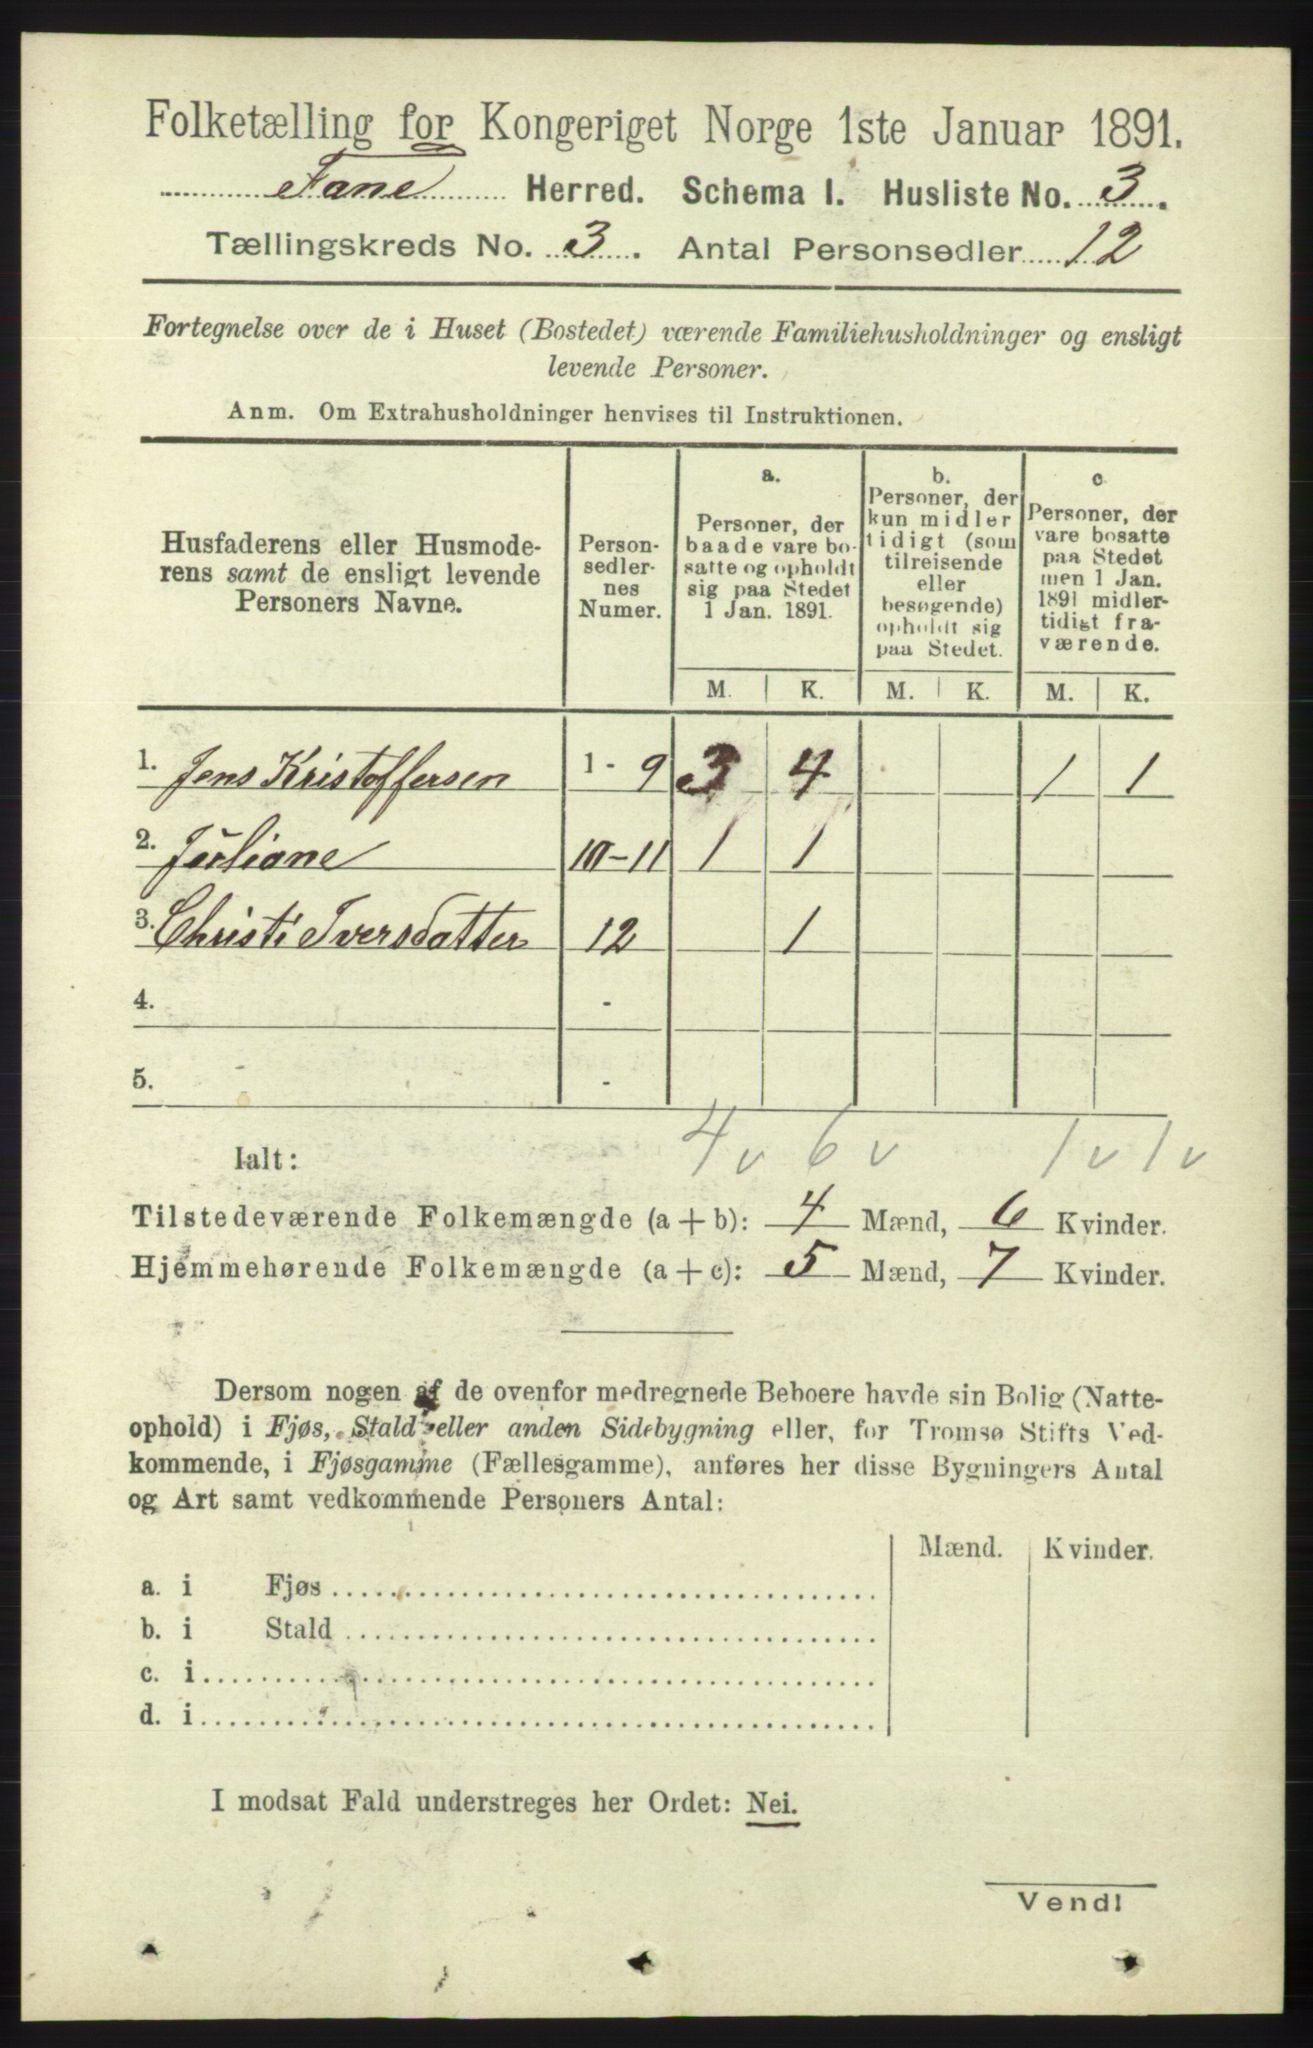 Folketælling for Kongeriget Norge 1ste Januar 1891.
Fane Herred. Schema I. Husliste No. 3.
Tællingskreds No. 3. Antal Personsedler 12
Fortegnelse over de i Huset (Bostedet) værende Familiehusholdninger og ensligt
levende Personer.
Anm. Om Extrahusholdninger henvises til Instruktionen.
Husfaderens eller Husmode-
rens samt de ensligt levende
Personers Navne.
Person-
sedler-
nes
Numer.
a.
Personer, der
baade vare bo-
satte og opholdt
sig paa Stedet
1 Jan. 1891.
b.
Personer, der
kun midler
tidigt (som
tilreisende
eller
besøgende)
opholdt sig
paa Stedet.
c
Personer, der
vare bosatte
paa Stedet
men 1 Jan.
1891 midler-
tidigt fra-
værende.
M. K. M. K. M. K.
1. Jens Kristoffersen 1 - 9 3 4 1 1
2. Juliane 10-11 1 1
3. Christi Iversdatter 12 1
4. -
5. -
Ialt: 4 v 6 v 1 v 1 v
Tilstedeværende Folkemængde (a + b): 4 Mænd, 6 Kvinder.
Hjemmehørende Folkemængde (a + c): 5 Mænd, 7 Kvinder.
Dersom nogen af de ovenfor medregnede Beboere havde sin Bolig (Natte-
ophold) i Fjøs, Stald eller anden Sidebygning eller, for Tromsø Stifts Ved-
kommende, i Fjøsgamme (Fællesgamme), anføres her disse Bygningers Antal
og Art samt vedkommende Personers Antal:
Mænd. Kvinder.
a. i Fjøs
b. i Stald
c. i
d. i
I modsat Fald understreges her Ordet: Nei.
Vend!